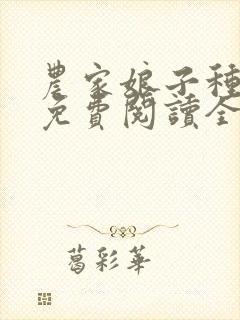 農家娘子種
免費閱讀全
葛彩華